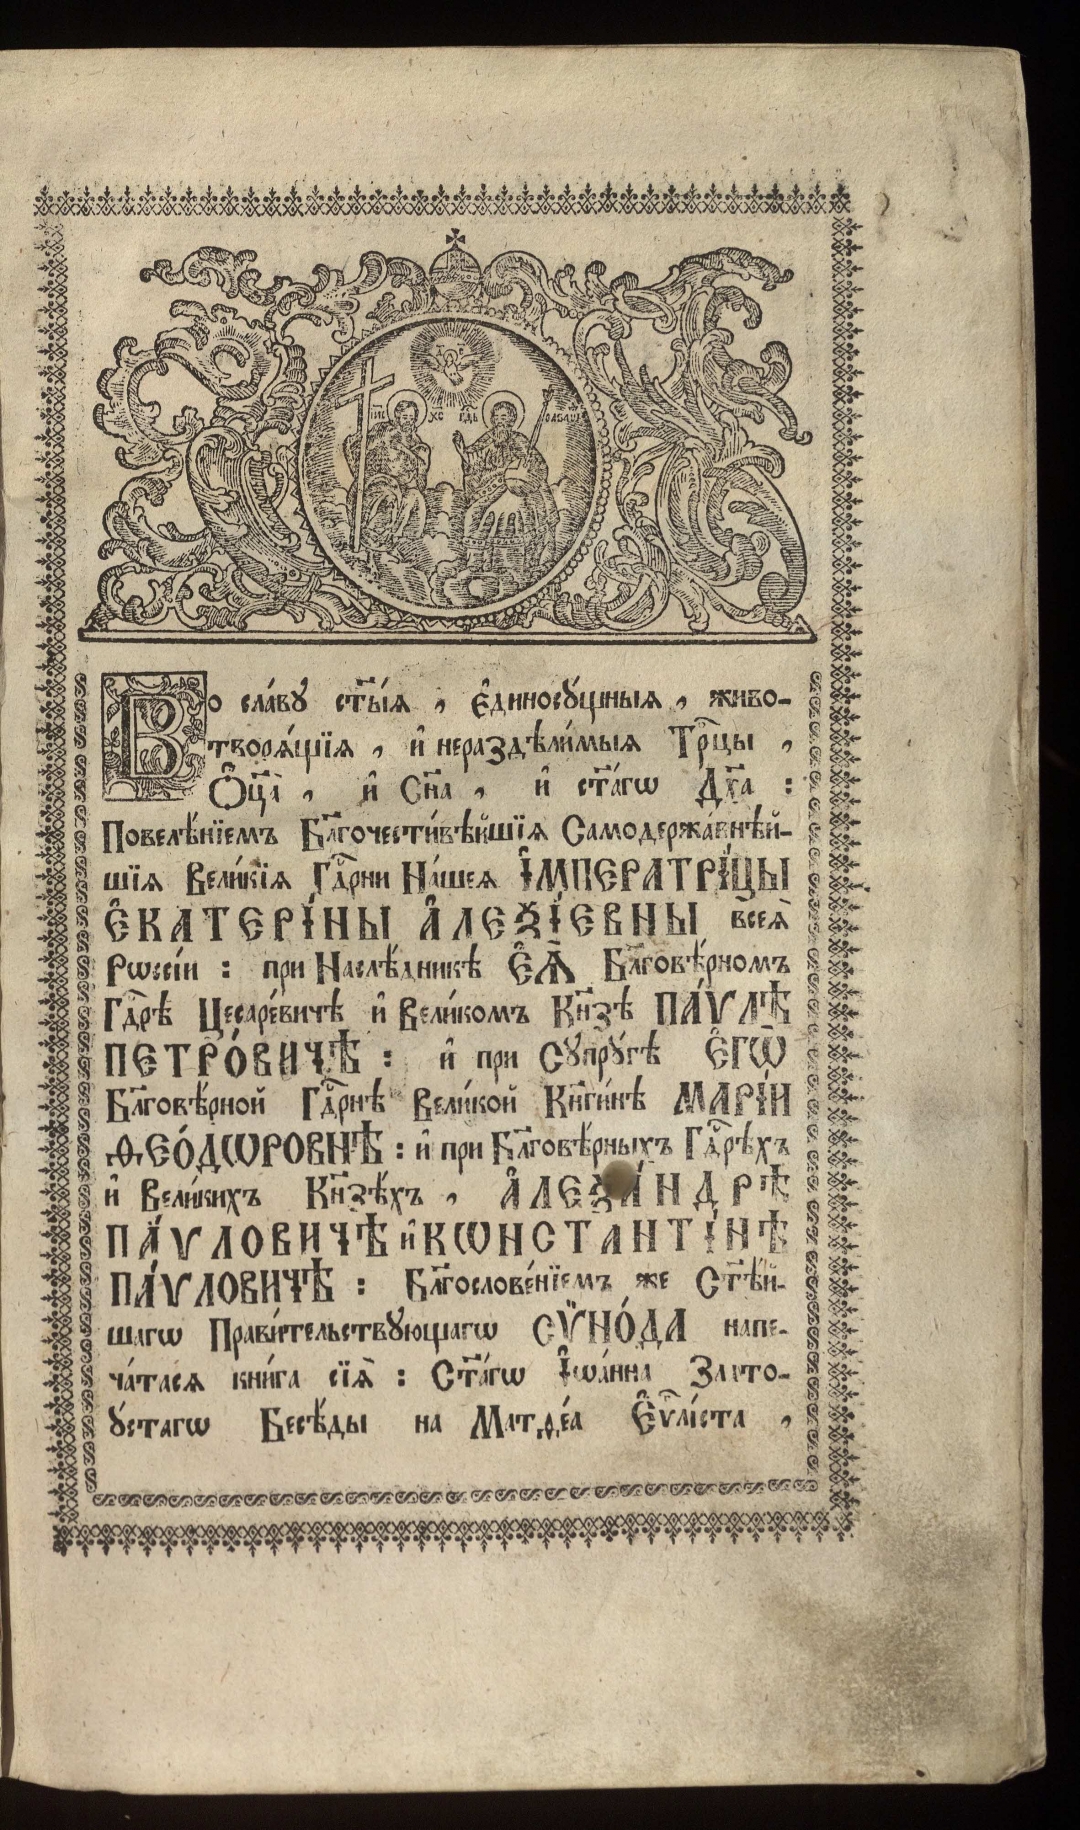 І҃С ХС ГД҇Ь САВАѠ҆
Во сла́вꙋ ст҃ы́ѧ , є҆диносꙋ́щныѧ , живо-
творѧ́щїѧ , и҆ нераздѣли́мыѧ Трⷪ҇цы ,
Ѻ҆ц҃а̀ , и҆ Сн҃а , и҆ ст҃а́гѡ Дх҃а :
Повелѣ́нїемъ Бл҃гочести́вѣйшїѧ Самодержа́внѣй-
шїѧ Вели́кїѧ Гдⷭ҇рни На́шеѧ І҆МПЕРАТРІ́ЦЫ
Є҆КАТЕРІ́НЫ А҆ЛЕѮІ́ЕВНЫ всеѧ̀
Рѡссі́и : при Наслѣ́дникѣ Є҆Ѧ̀ Бл҃говѣ́рномъ
Гдⷭ҇рѣ Цесаре́вичѣ и҆ Вели́комъ Кн҃зѣ ПА́ѴЛѢ
ПЕТРО́ВИЧѢ : и҆ при Сꙋпрꙋ́гѣ Є҆ГѠ̀
Бл҃говѣ́рной Гдⷭ҇рнѣ Вели́кой Кн҃ги́нѣ МАРІ́И
Ѳ҆ЕО́ДѠРОВНѢ : и҆ при Бл҃говѣ́рныхъ Гдⷭ҇рѣхъ
и҆ Вели́кихъ Кн҃зѣ́хъ , А҆ЛЕѮА́НДРѢ
ПА́ѴЛОВИЧѢ и҆ КѠНСТАНТІ́НѢ
ПА́ѴЛОВИЧѢ : Бл҃гослове́нїемъ же Ст҃ѣ́й-
шагѡ Прави́тельствꙋющагѡ СѴНО́ДА напе-
ча́тасѧ кни́га сїѧ̀ : Ст҃а́гѡ І҆ѡа́нна Злато-
ꙋ́стагѡ Бесѣ́ды на Матѳе́а Є҆ѵⷢ҇лі́ста ,